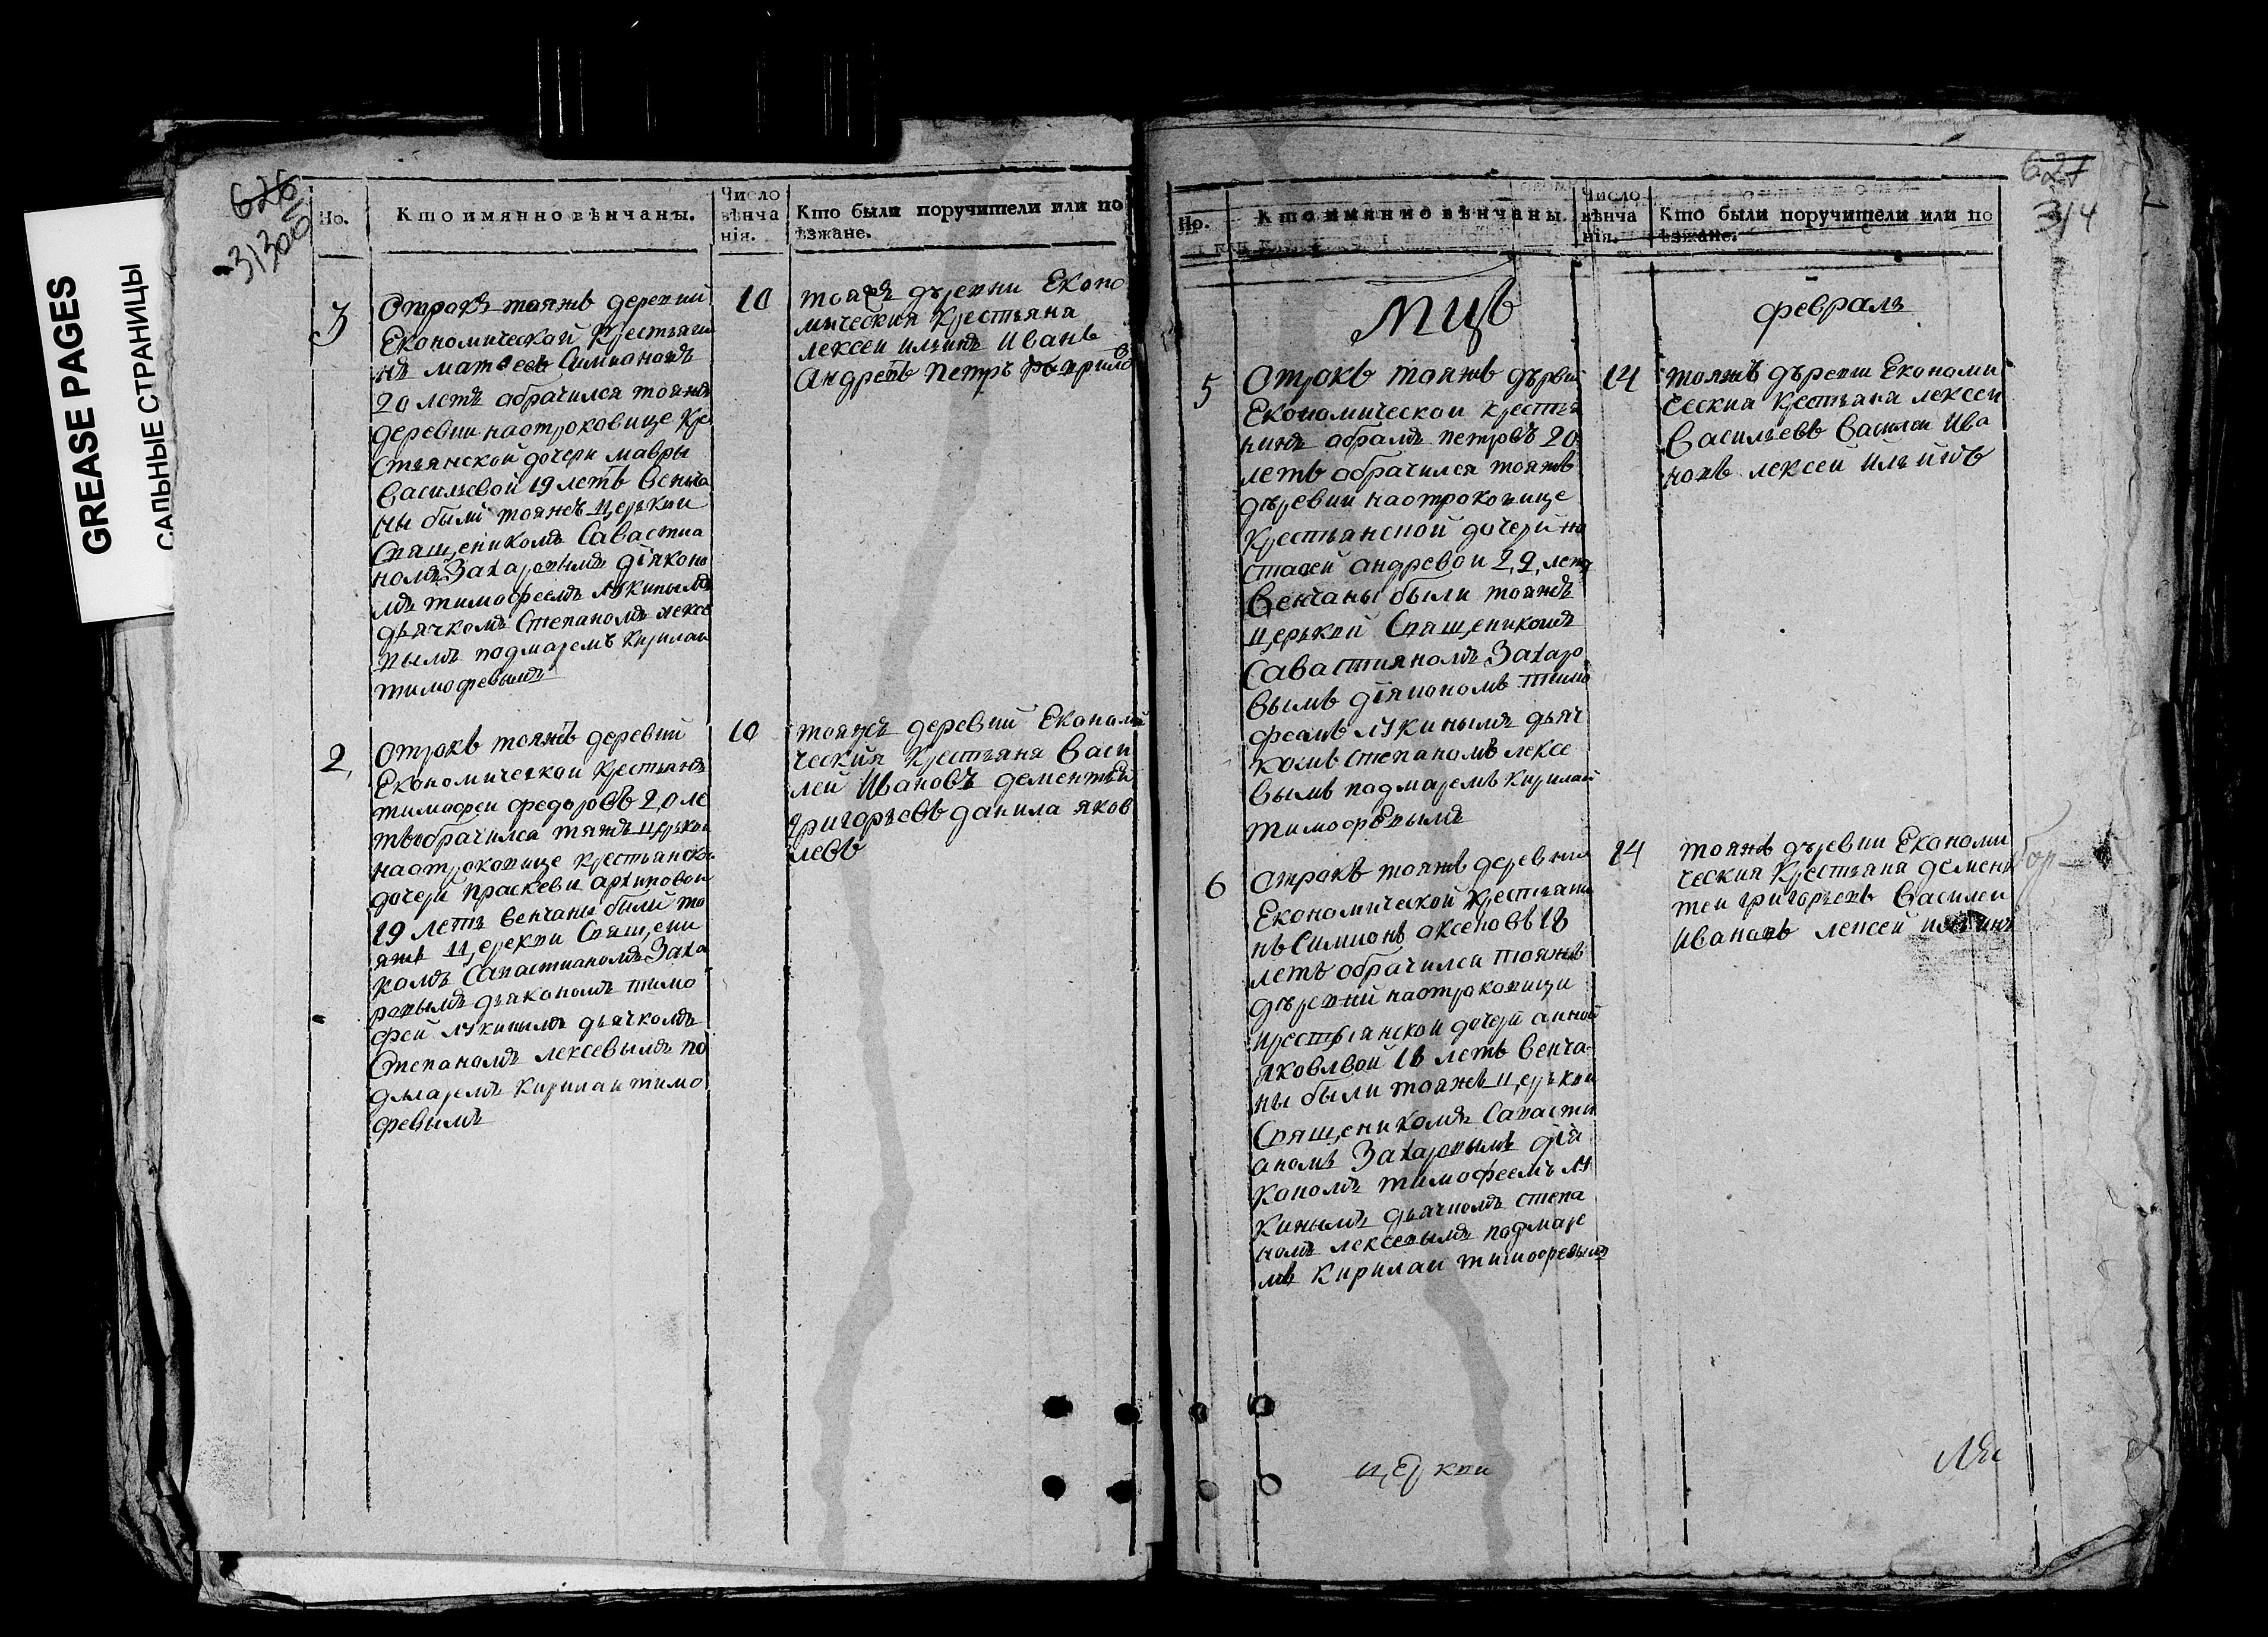 GREASE PAGES
САЛЬНЫЕ СТРАНИЦЫ
626
313об
Но.
Кто имянно вѣнчаны.
Число
вѣнча
нія.
Кто были поручители или по
ѣзжане.
3
Отрокъ тояжъ деревни
Економической Крестьяни
нъ матвеевъ Симионовъ
20 летъ обрачился тояжъ
деревни наотроковице Кре
стьянской дочери мавры
Васильевой 19 летъ Венча
ны были тояжъ церькви
Священикомъ Савастиа
номъ Захаровымъ діяконо
мъ тимофеемъ лукинымъ
дьячкомъ Степаномъ лексе
вымъ
Кирилаи
тимофевымъ
10
тояжъ дъревни Еконо
мическия Крестьяна
лексеи ильинъ Иванъ
Андревъ Петръ
2,
отрокъ тояжъ деревни
Економической Крестьянъ
тимофеи федоровъ 20 ле
тъ обрачился тояжъ церькви
наотроковице крестьянской
дочери праскеви архиповои
19 летъ венчаны были то
яжъ церекви Священи
комъ Савастианомъ Заха
ровымъ дьякономъ тимо
феи лукинымъ дьячкомъ
Степаномъ лексевымъ по
Кирилаи тимо
февымъ
10
тояжъ деревни Економи
ческия Крестьяна Васи
леи Ивановъ дементеи
григорьевъ данила яков
левъ
627
314
Но.
Кто имянно вѣнчаны.
Число
вѣнча
нія.
Кто были поручители или по
ѣзжане.
мцъ
февраль
5
Отрокъ тояжъ дъревни
Економическои Крестья
нинъ абрамъ петровъ 20
летъ обрачился тояжъ
дъревни наотроковице
Крестьянской дочери на
стасеи андревои 22, летъ
Венчаны были тояжъ
церькви Священикомъ
Савастияномъ Захаро
вымъ діякономъ тимо
феамъ лукинымъ дьяч
комъ степаномъ лексе
вымъ
Кирилаи
тимофевымъ
14
тояжъ дъревни Економи
ческия Крестьяна лексеи
Васильевъ Василеи Ива
новъ лексеи ильинъ
6
отрокъ тояжъ деревни
Економической Крестьяни
нъ Симионъ аксеновъ 18
летъ обрачился тояжъ
дъревни наотроковици
крестьянскои дочери анной
яковлвой 18 летъ венча
ны были тояжъ церькви
Священикомъ Савасти
аномъ Захаровымъ діа
кономъ тимофеемъ лу
кинымъ дьячкомъ степа
номъ лексевымъ
Кирилаи тимофевымъ
14
тояжъ дъревни Економи
ческия Крестьяна демен
теи григорьевъ Василеи
Ивановъ лексеи ильинъ
церкви